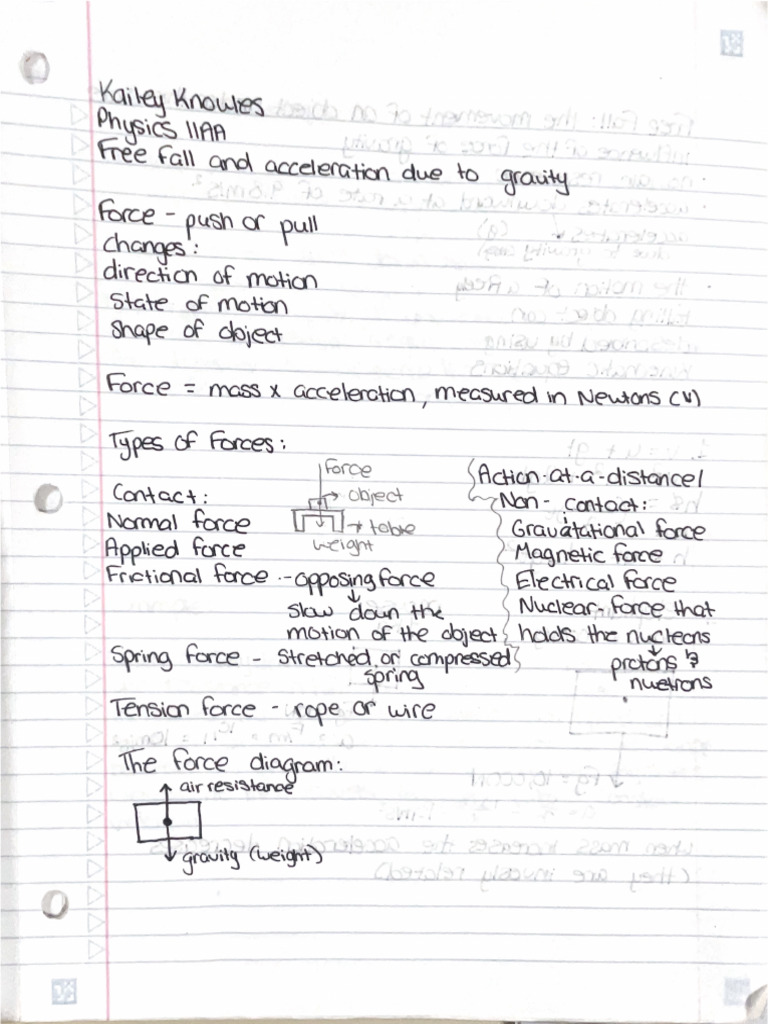 Kailey Knowles
Physics 11AA
Free fall and acceleration due to gravity
Force - push or pull
Changes:
direction of motion
State of motion
Shape of object
Force = mass x acceleration, measured in Newtons (N)
Types of Forces:
Contact:
Normal force
Applied force
Frictional force - opposing force
↓
slow down the
motion of the object
Spring force - stretched or compressed
spring
Tension force - rope or wire
force
→ object
→ table
weight
Action-at-a-distance/
Non-contact:
Gravatational force
Magnetic force
Electrical force
Nuclear-force that
holds the nucleons
↓
protons &
nuetrons
The force diagram:
air resistance
gravity (weight)